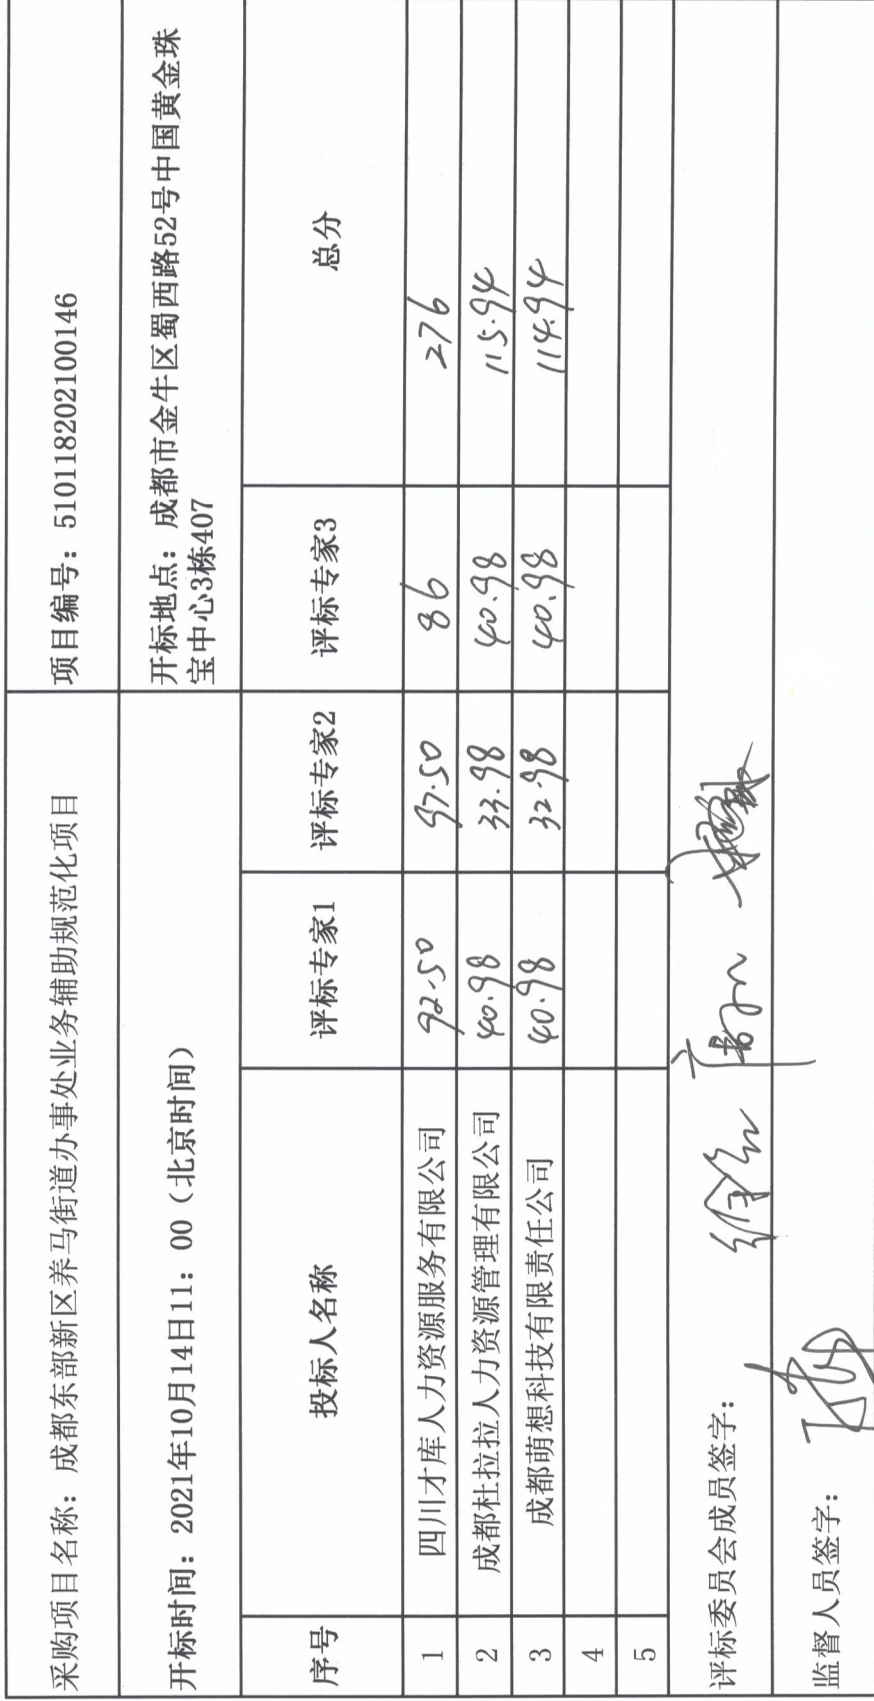 采购项目名称：成都东部新区养马街道办事处业务辅助规范化项目 项目编号：510118202100146
开标时间：2021年10月14日11：00（北京时间） 开标地点：成都市金牛区蜀西路52号中国黄金珠
宝中心3栋407
序号 投标人名称 评标专家1 评标专家2 评标专家3 总分
1 四川才库人力资源服务有限公司 92.50 97.50 86 276
2 成都杜拉拉人力资源管理有限公司 40.98 33.98 40.98 115.94
3 成都萌想科技有限责任公司 40.98 32.98 40.98 114.94
4
5
评标委员会成员签字：
监督人员签字：